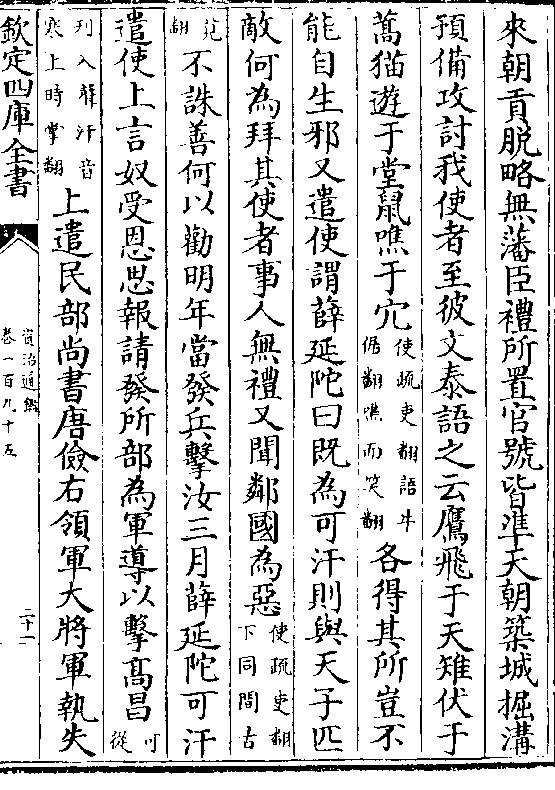 來朝貢脱略無藩臣禮所置官號皆準天朝築城掘溝
預備攻討我使者至彼文泰語之云鷹飛于天雉伏于
蒿猫遊于堂鼠噍于穴使疏吏翻語牛倨翻噍而笑翻各得其所豈不
能自生邪又遣使謂薛延陀曰既為可汗則與天子匹
敵何為拜其使者事人無禮又聞鄰國為惡使疏吏翻下同間古
莧翻不誅善何以勸明年當發兵擊汝三月薛延陀可汗
遣使上言奴受恩思報請發所部為軍導以擊髙昌可從
刋入聲汗音寒上時掌翻上遣民部尚書唐儉右領軍大將軍執失
欽定四庫全書
資治通鑑
卷一百九十五
二十一